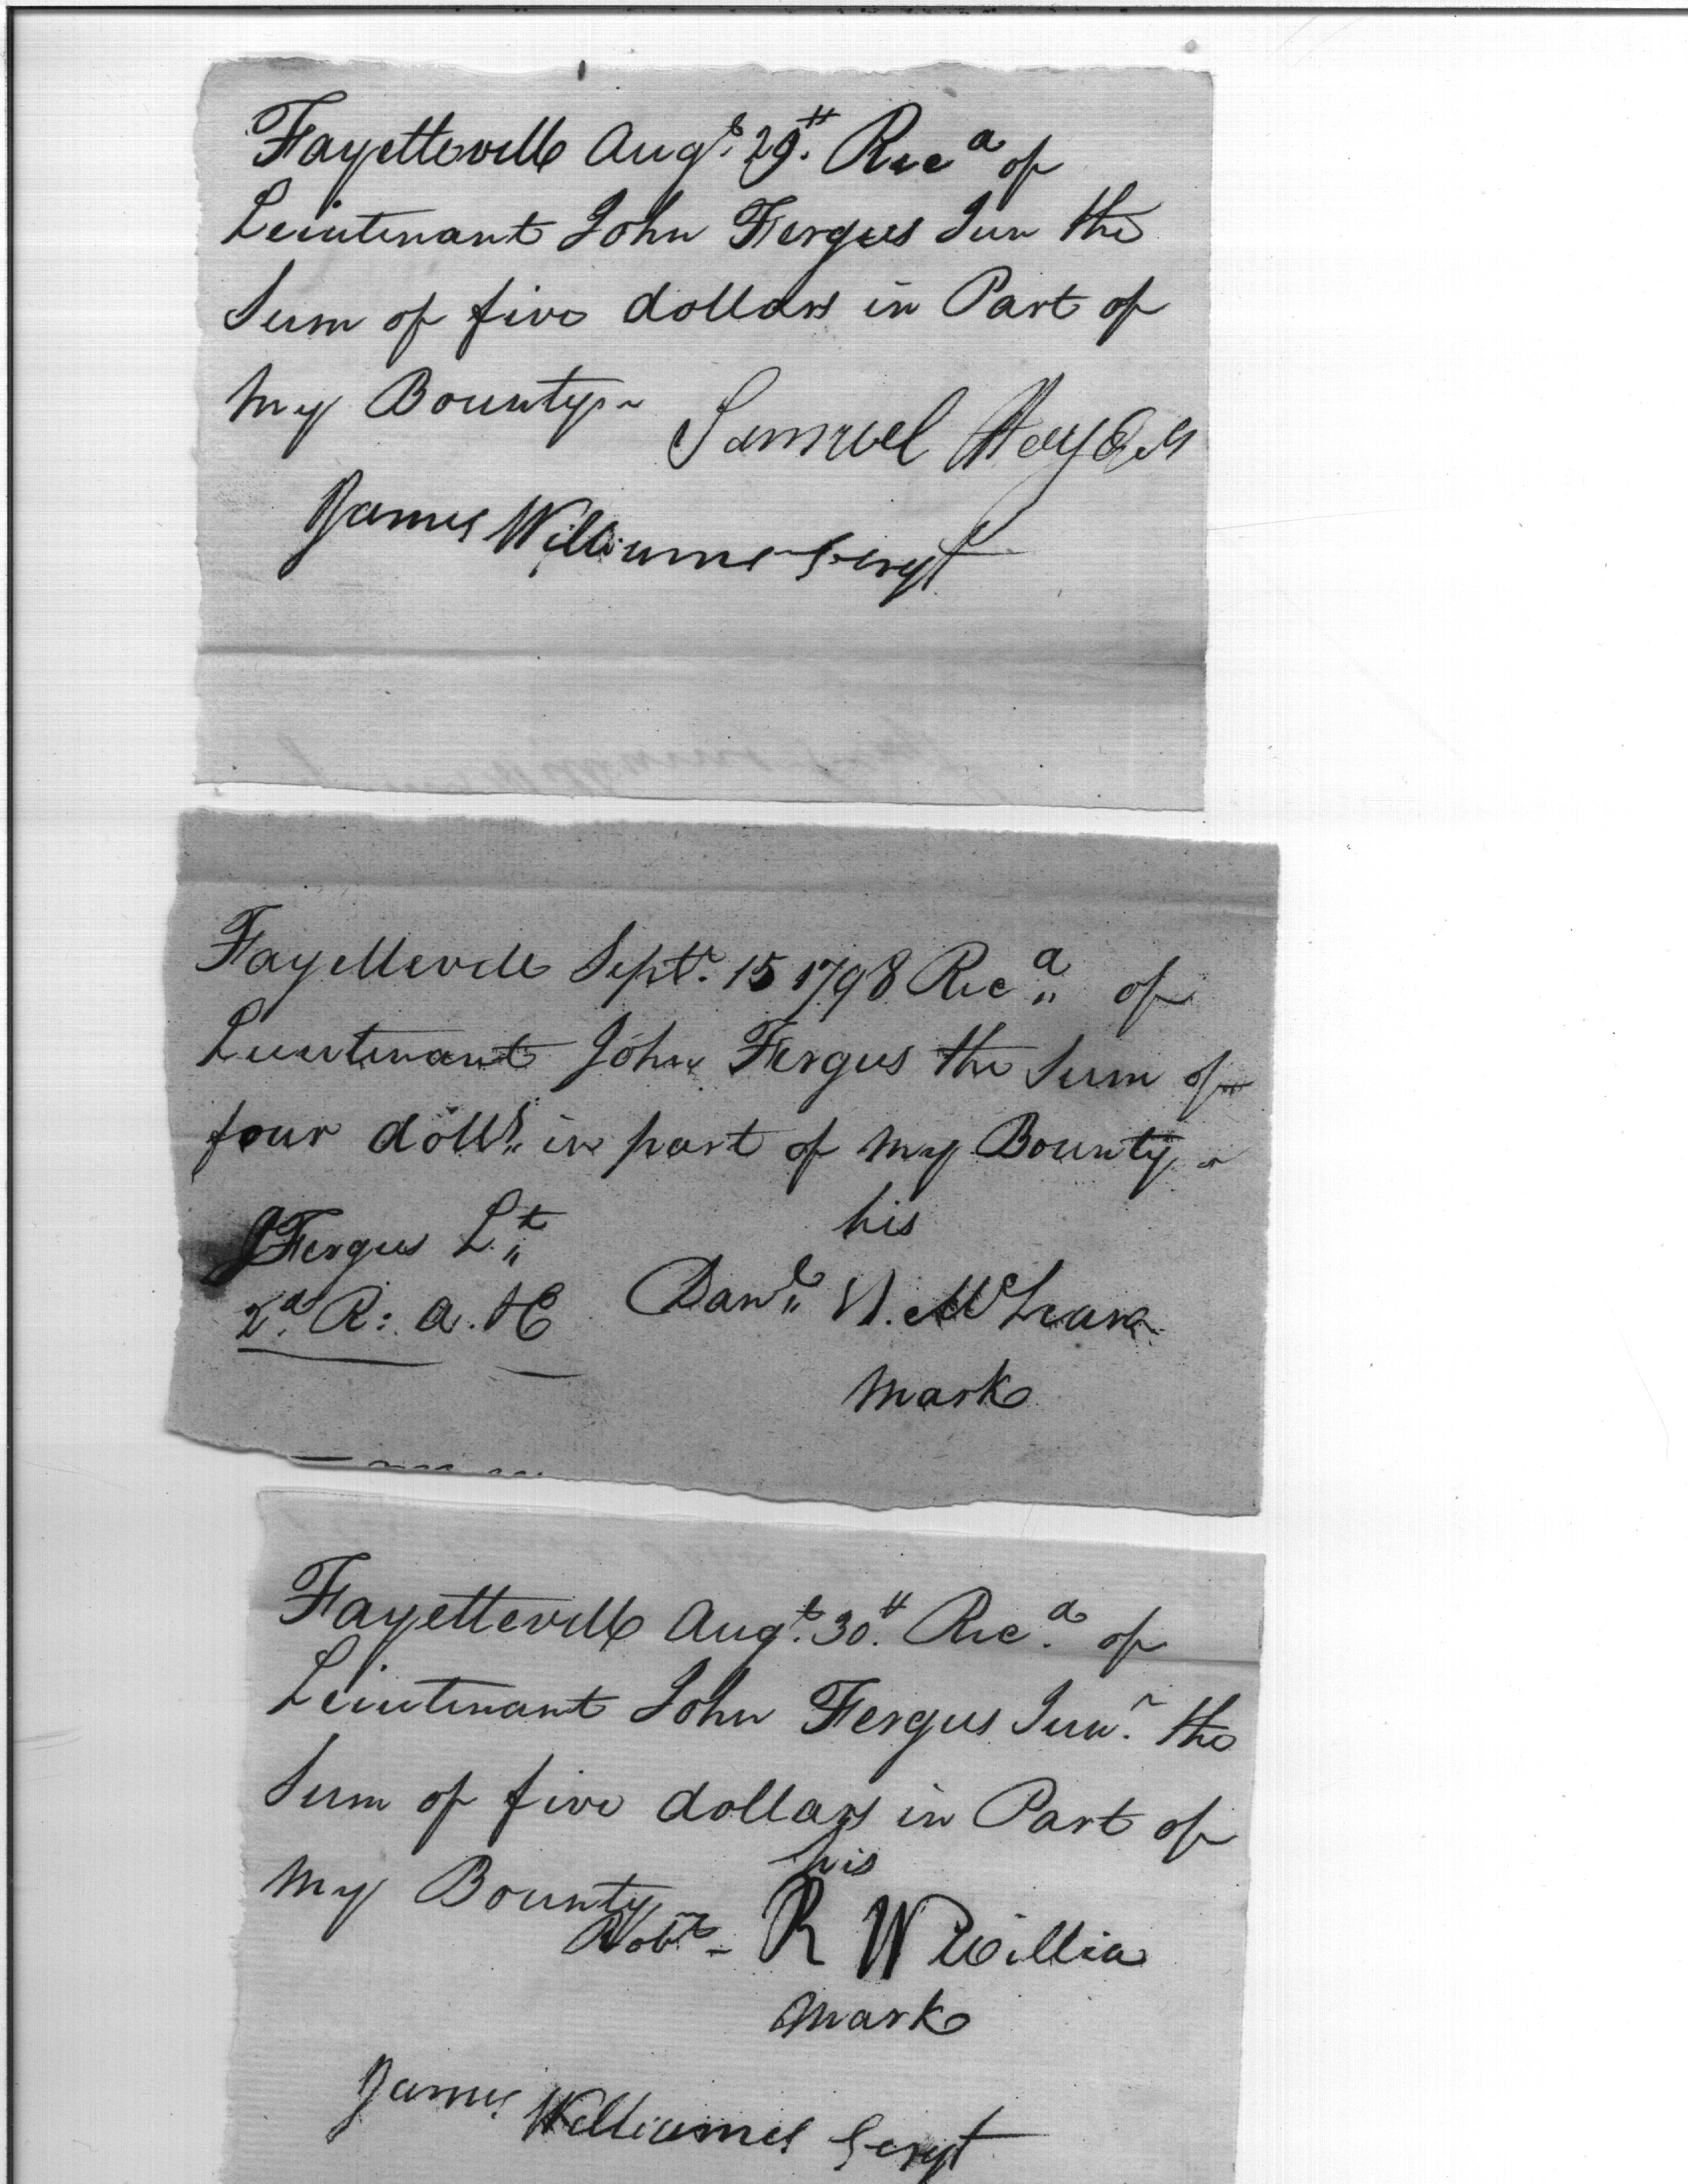 Fayetteville Augt. 29th. Recd of
Leiutenant John Fergus Jun the
Sum of five dollars in Part of
my Bounty
Samuel
James Williams Sergt
Fayetteville Sept. 15 1798 Recd of
Lieutenant John Fergus the Sum of
four dolls in part of my Bounty
JFergus Lt
his
2d. R: a. &C
Danl N. McLean
mark
Fayetteville Augt. 30th. Recd. of
Leiutenant John Fergus Junr. the
Sum of five dollars in Part of
my Bounty
his
Robt R W Willia
mark
James Williams Sergt